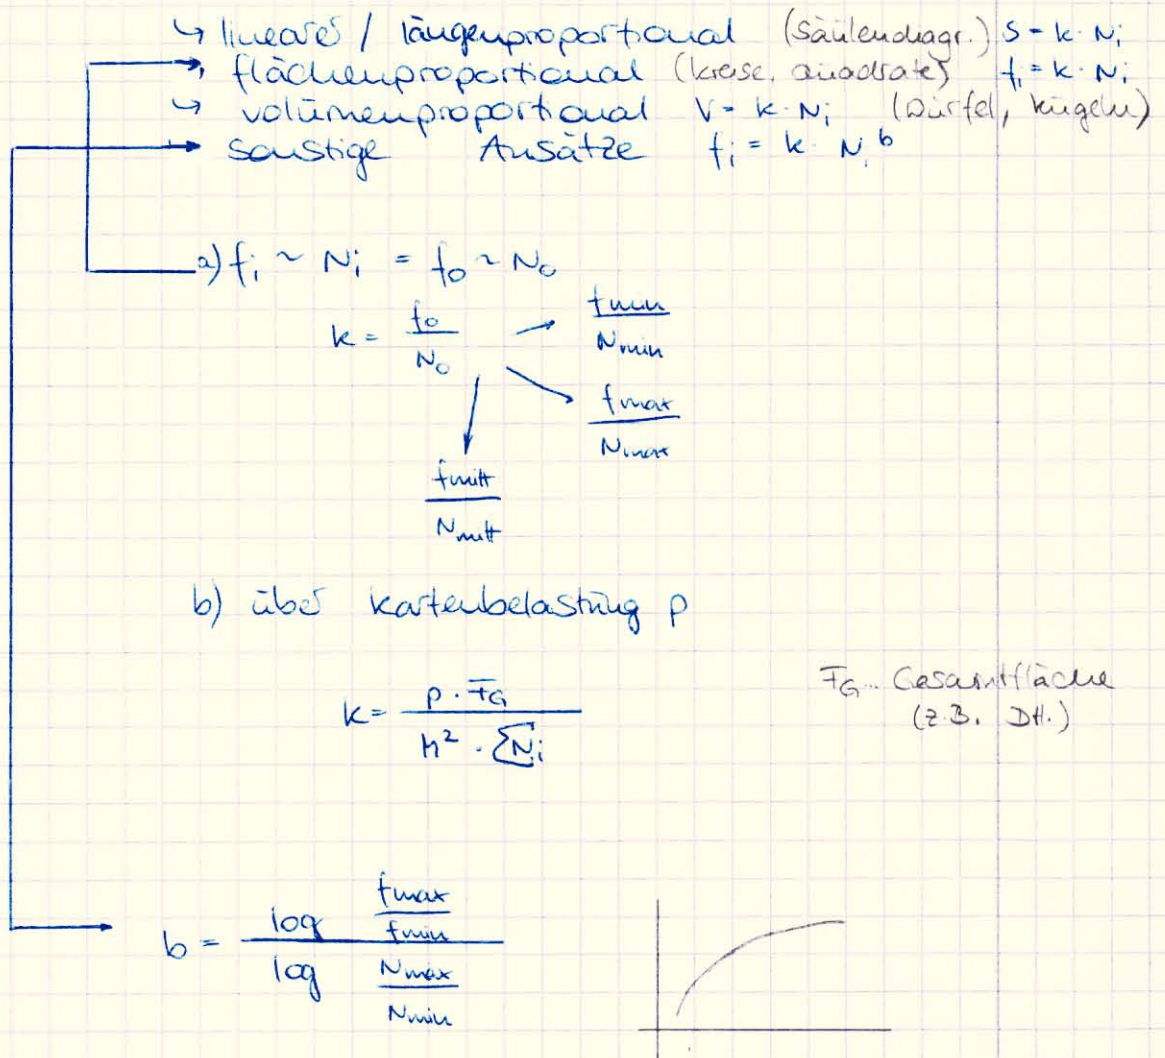 ↳ linearer / längenproportional (Säulendiagr.) S = k · Ni
↳ flächenproportional (Kreise, Quadrate) fi = k · Ni
↳ volumenproportional V = k · Ni (Würfel, Kugeln)
→ sonstige Ansätze fi = k · Ni^b
a) fi ~ Ni = fo ~ No
k = fo / No → fmin / Nmin
fmax / Nmax
fmitt / Nmitt
b) über Kartenbelastung p
k = p · FG / M² · ΣNi
FG... Gesamtfläche
(z.B. Dtl.)
b = log fmax / fmin / log Nmax / Nmin